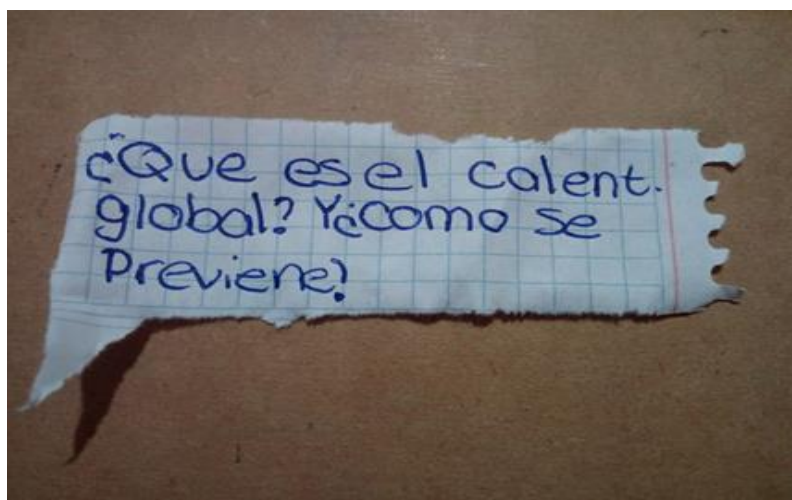 ¿Que es el calent.
global? Y¿como se
Previene?